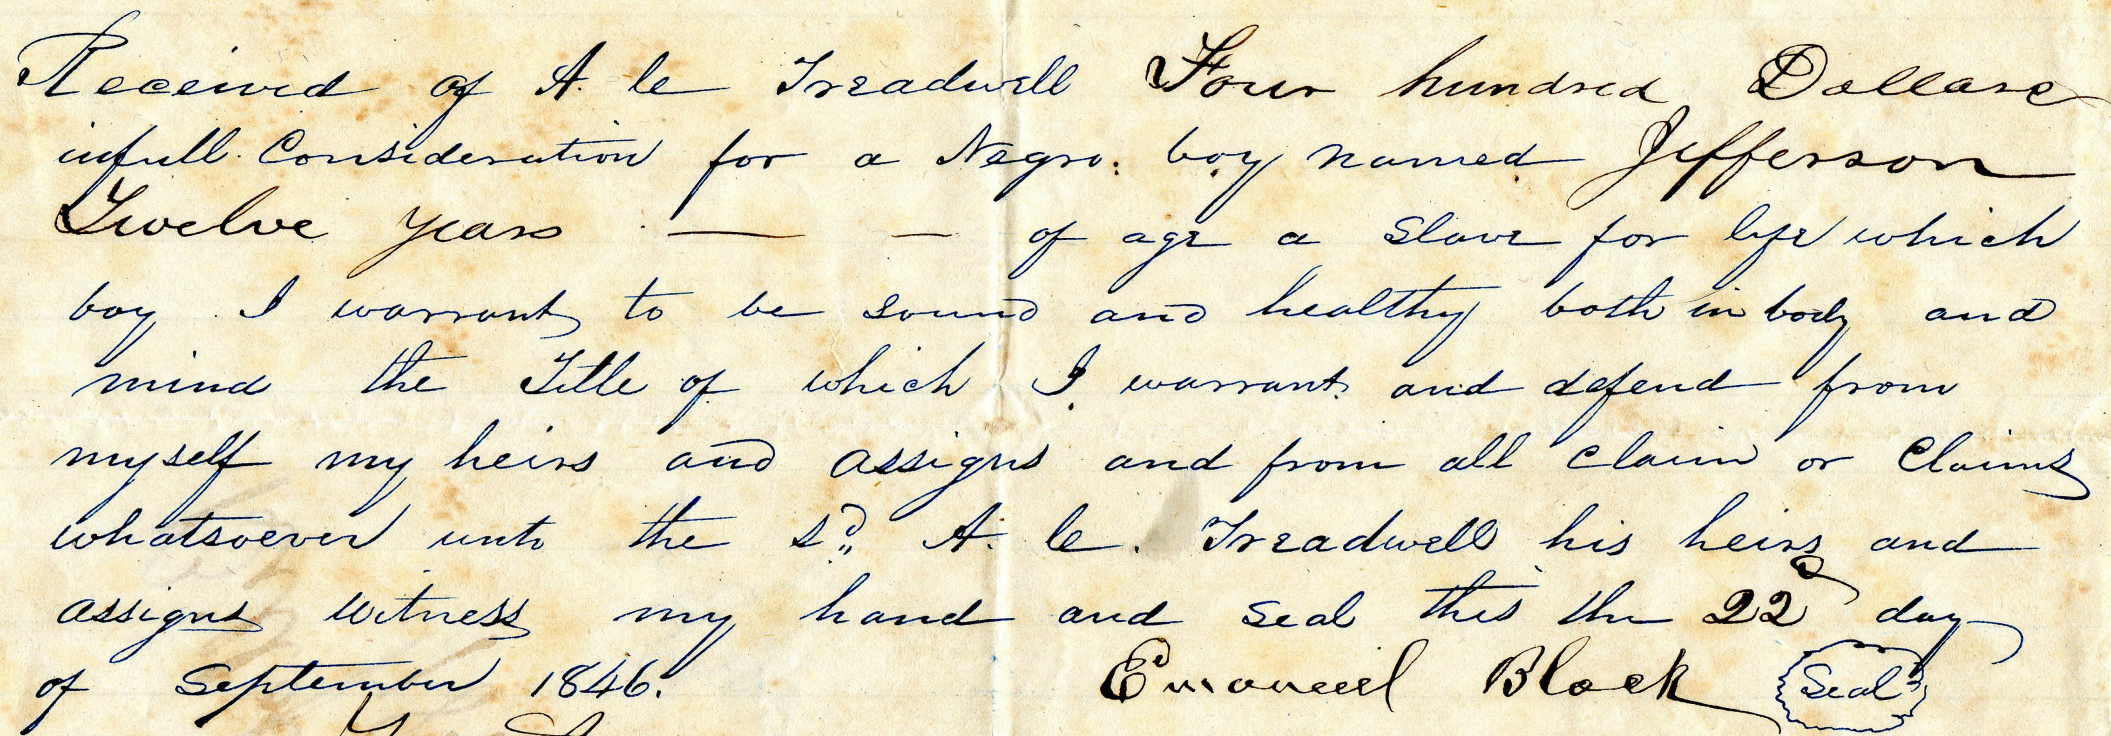 Received of A. C. Treadwell Four hundred Dollars
infull Consideration for a Negro boy named Jefferson
Twelve years — — of age a Slave for life which
boy I warrant to be sound and healthy both in body and
mind the Title of which I warrant and defend from
myself my heirs and assigns and from all Claim or Claims
whatsoever unto the Sd. A. C. Treadwell his heirs and
assigns Witness my hand and Seal this the 22d day
of September 1846. Emanuel Block Seal